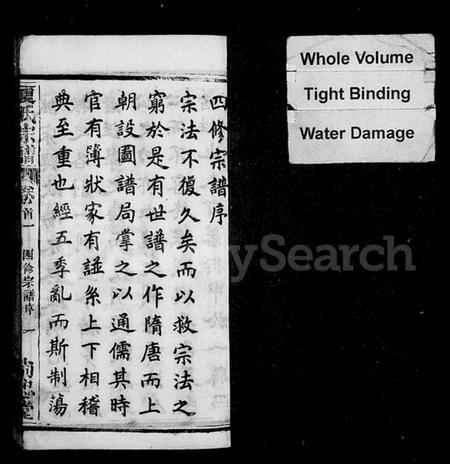 四修宗譜序
宗法不復久矣而以救宗法之
窮於是有世譜之作隋唐而上
朝設圖譜局掌之以通儒其時
官有簿狀家有譜系上下相稽
典至重也經五季亂而斯制蕩
夏氏宗譜
卷首一
四修宗譜序
一
Whole Volume
Tight Binding
Water Damage
ySearch